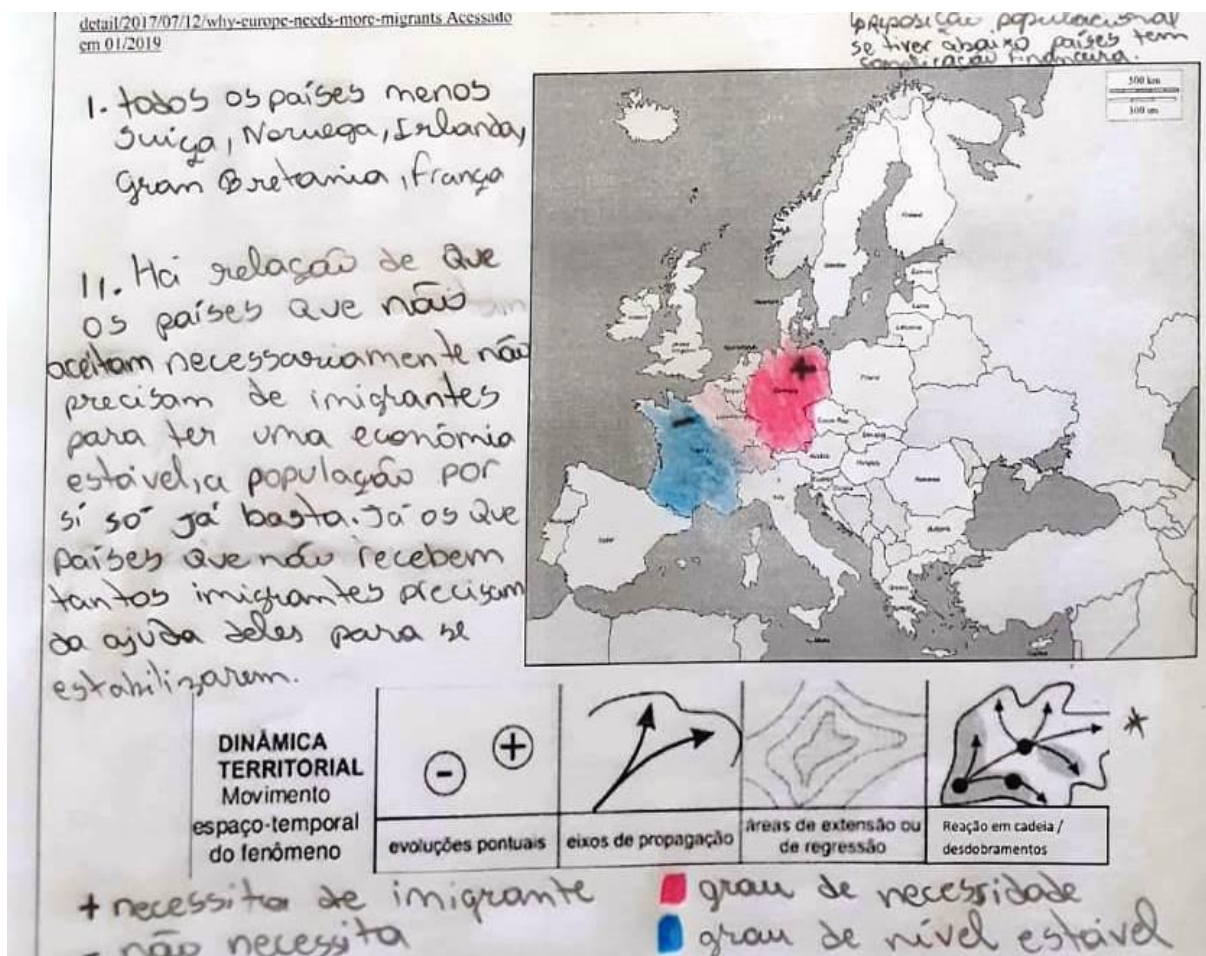 detail/2017/07/12/why-europe-needs-more-migrants Acessado
em 01/2019
reposição populacional
se tiver abaixo países tem
complicação financeira.
1. todos os países menos
Suiça, Noruega, Irlanda,
Gram Bretania, frança
11. Há relação de que
os países que não
aceitam necessariamente não
precisam de imigrantes
para ter uma econômia
estável, a população por
sí só já basta. Já os que
países que não recebem
tantos imigrantes precisam
da ajuda deles para se
estabilizarem.
500 km
Finland
Poland
Germany
Spain
Italy
Romania
+
-
DINÂMICA
TERRITORIAL
Movimento
espaço-temporal
do fenômeno
- +
evoluções pontuais
eixos de propagação
áreas de extensão ou
de regressão
Reação em cadeia /
desdobramentos
*
+ necessita de imigrante
- não necessita
grau de necessidade
grau de nível estável